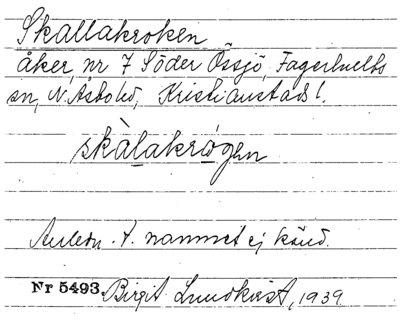 Skallakroken
åker, nr 7 Söder Össjö, Fagerhults
sn, N. Åsbo hd, Kristianstads l.
skàlakrǫgen
Anledn. t. namnet ej känd.
Nr 5493. Birgit Lundkvist, 1939